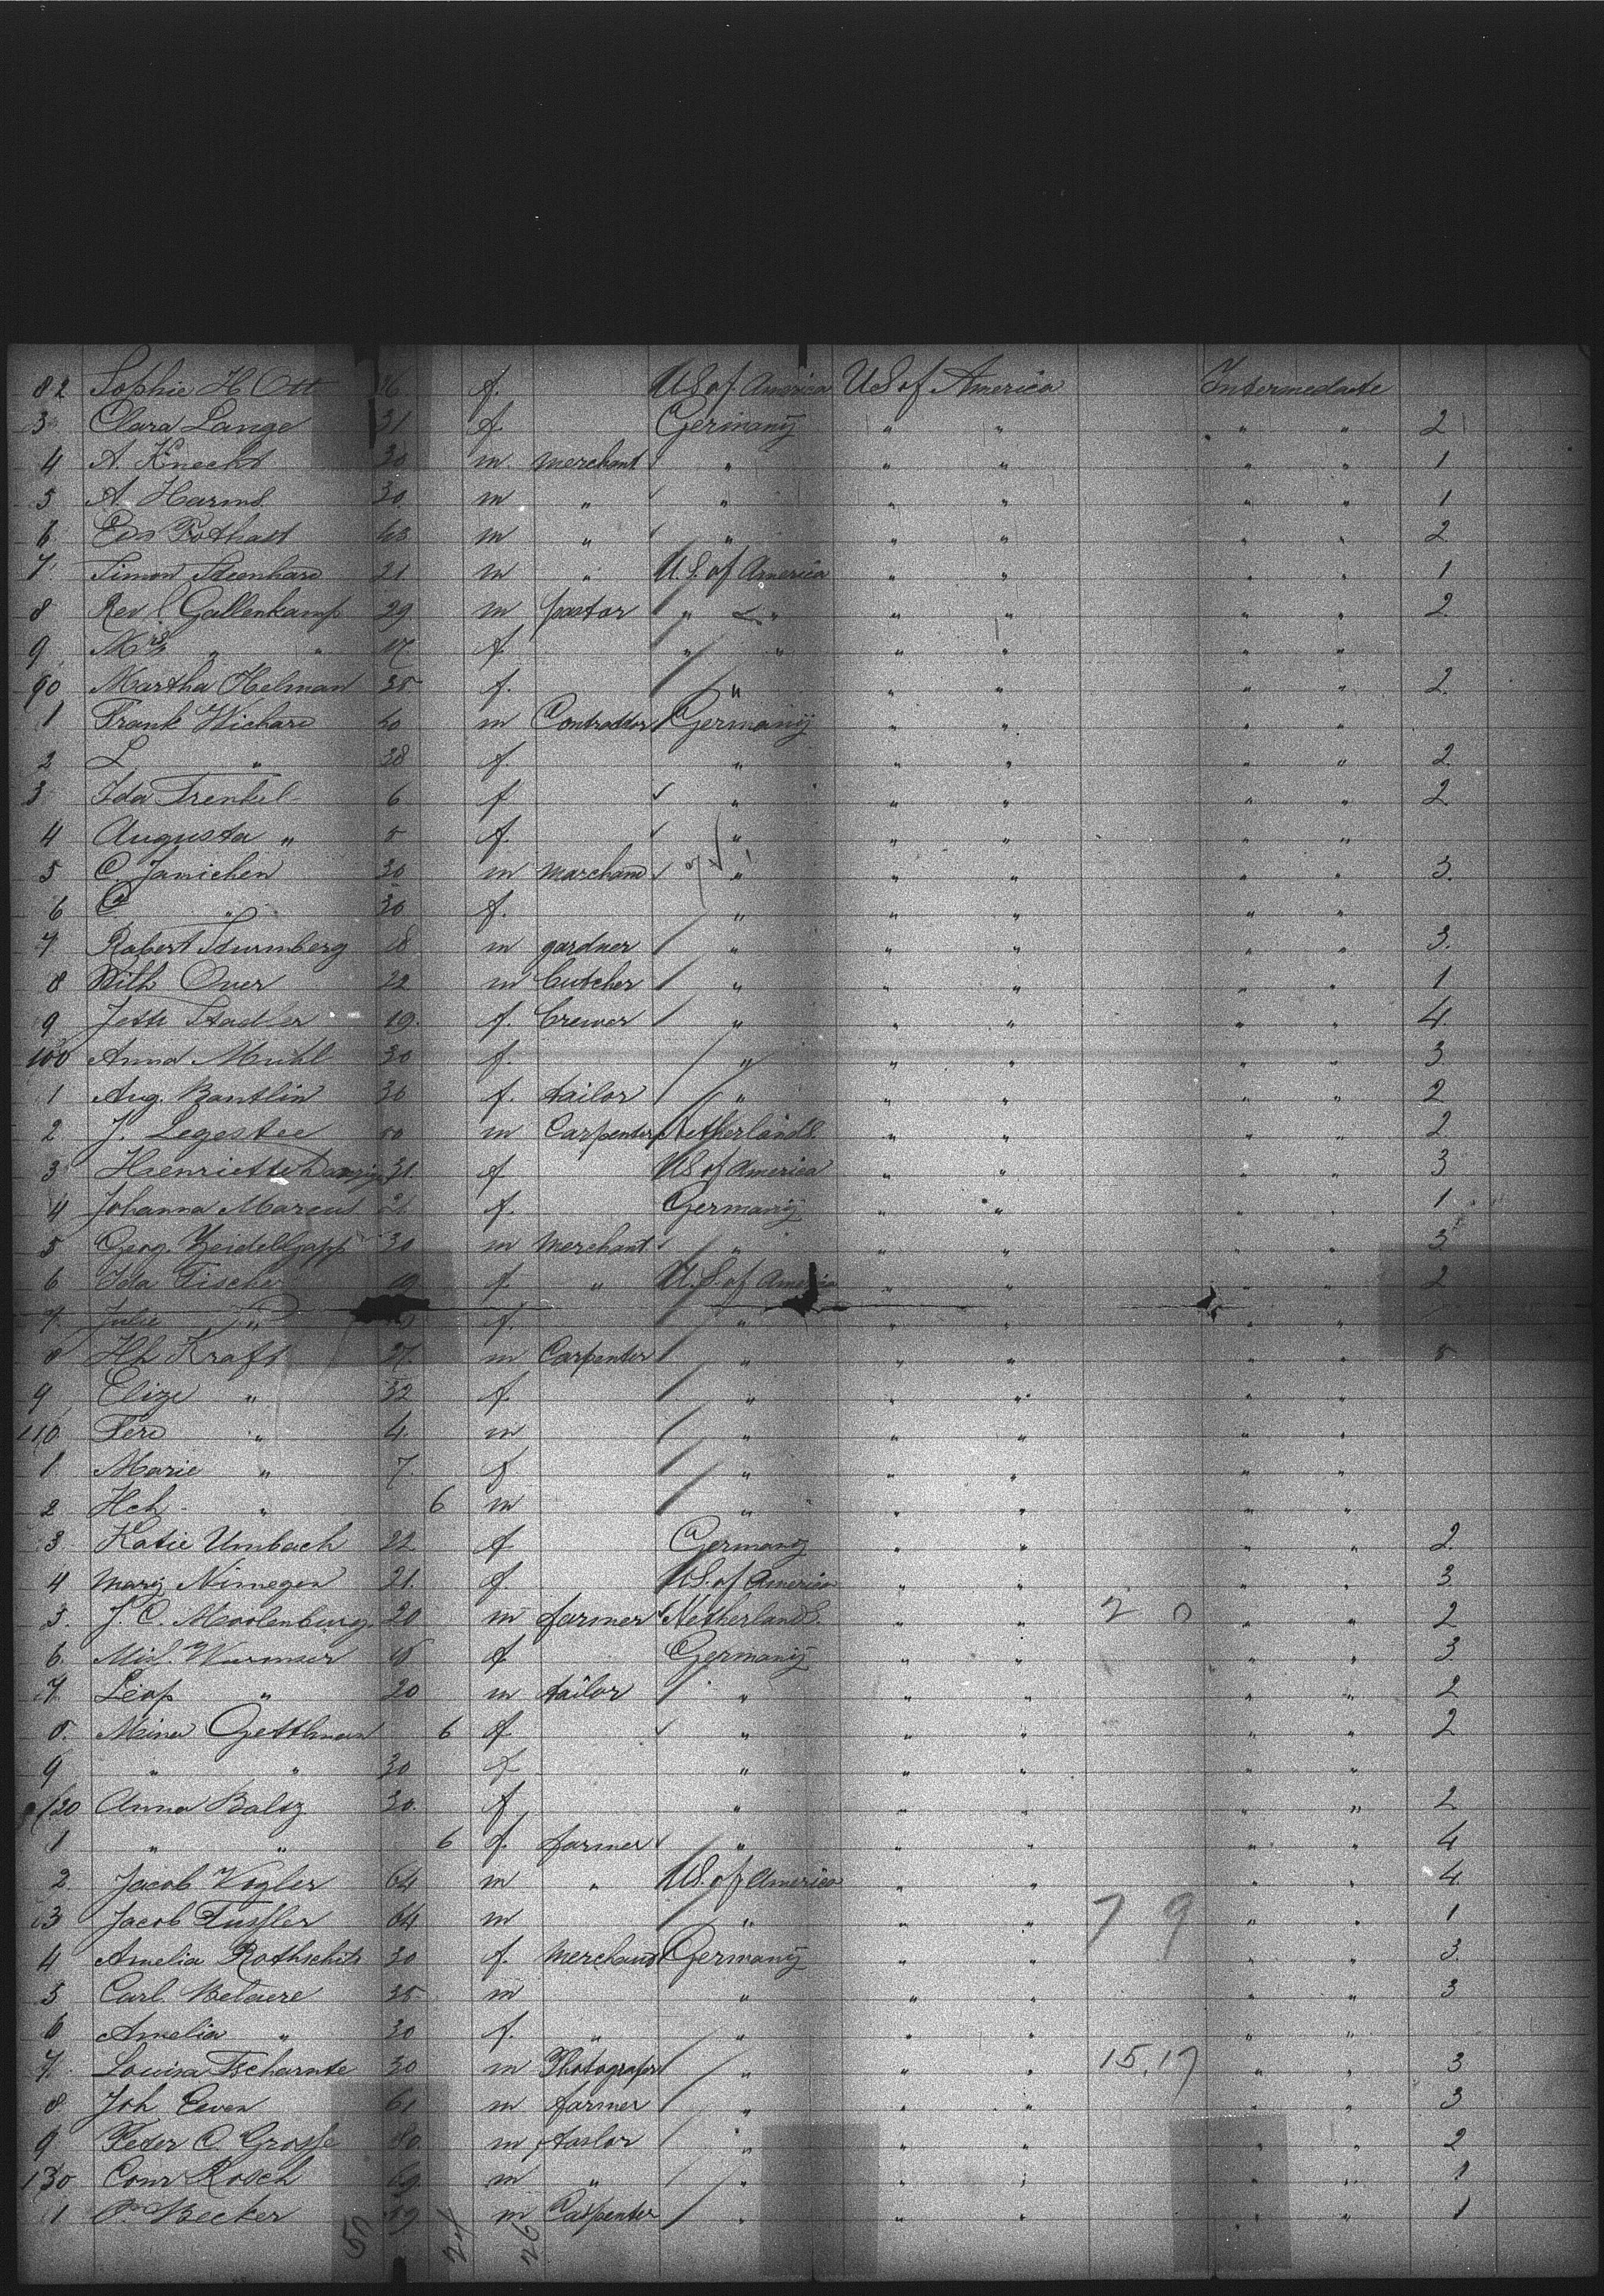 82 Sophie H Ott 26. f. US of America US of America Intermediate
3 Clara Lange 31 f. Germany " " " " 2
4 A. Knecht 30 m merchant " " " " " 1
5 A. Harms 30. m " " " " " 1
6 m " " " " " " 2
7 Simon 21 m " U.S. of America " " " " 1
8 Rev Gallenkamp 29 m pastor " " " " " " 2.
9 Mrs " " f. " " " " " "
90 Martha Helman 35 f. " " " " " 2.
1 Frank Wichard m Germany " " " "
2 L " 38 f. " " " " " 2.
3 Ida Frenkel 6 f " " " " " 2
4 Augusta " f. " " " " "
5 C. Janichen 30 m " " " " " 3.
6 " 30 f. " " " " "
7 Robert Sturmberg 18 m gardner " " " " " 3.
8 Wilh Over 22 m butcher " " " " " 1
9 Stadler 19. f. " " " " " 4.
100 Anna Muhl 30 f. " " " " " 3
1 Aug. Bantlin 30 f. tailor " " " " " 2
2 J. Legestee m Carpenter Netherlands. " " " " 2
3 Henriette 31. f US of America " " " " 3
4 Johanna Marcus 21 f. Germany " " " " 1
5 Georg. 30 m Merchant " " " " " 3
6 Ida Fischer f. " U.S. of America " " " " 2
7. Julie " f. " " " " "
8 Hh Kraft 27. m Carpenter " " " " "
9 Elize " 32 f. " " " " "
110. Ferd " 4. m " " " " "
1 Marie " 7. f " " " " "
2 Hch. " 6 m " " " " "
3. Katie Umbach 22 f. Germany " " " " 2.
4 Mary Nimegen 21. f. US. of America " " " " 3
5. J. C. Moolenburg. 20 m farmer Netherlands. " " " " 2
6. Wurmser f Germany " " " " 3
7. " 20 m tailor " " " " " 2
8. Mina Gettlman 6 f " " " " " 2
9 " " 30 f " " " " "
120 Anna Baltz 30. f " " " " " 2
1 " " 6 f. farmer " " " " " 4
2. Jacob Vogler 64 m " US. of America " " " " 4.
3 Jacob 64 m " " " 7 9 " " 1
4 Amelia Rothschild 30 f. Merchant Germany " " " " 3.
5 Carl 35 m " " " " " 3
6 Amelia " 30 f. " " " " " "
7. Louisa 30 m " " " 15,17 " " 3
8 Joh m farmer " " " " " 3
9 Peter C. Grosse m tailor " " " " " 2
130 Conr Rosch 69 m " " " " " " 1
1 P. Becker m Carpenter " " " " " 1
50 24 26